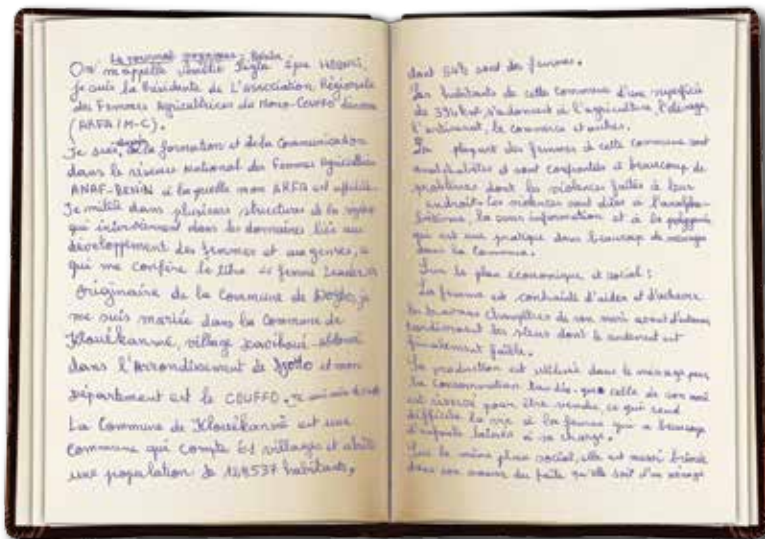 Le journal
On m'appelle Amélie épse
je suis la Présidente de L'Association Régionale
des Femmes Agricultrices du Mono-Couffo Bénin
(ARFA/M-C).
Je suis de la formation et de la Communication
dans le réseau National des Femmes Agricultrices
ANAF-BENIN à laquelle mon ARFA est affiliée.
Je milite dans plusieurs structures de la
qui interviennent dans les domaines liés au
développement des femmes et aux genres, ce
qui me confère le titre de femme Leader.
Originaire de la Commune de Dogbo, je
me suis mariée dans la Commune de
Klouékanmè, village
dans l'Arrondissement de et mon
département est le COUFFO.
La Commune de Klouékanmè est une
Commune qui compte 61 villages et abrite
une population de 128537 habitants,
dont 54% sont des femmes.
Les habitants de cette commune d'une superficie
de 394 km², s'adonnent à l'agriculture, l'élevage,
l'artisanat, le commerce et autres.
La plupart des femmes de cette commune sont
analphabètes et sont confrontées à beaucoup de
problèmes dont les violences faites à leur
endroit. Ces violences sont dûes à l'analpha-
bétisme, la sous information et à la polygamie
qui est une pratique dans beaucoup de ménages
dans la Commune.
Sur le plan économique et social :
La femme est contrainte d'aider et d'achever
les travaux champêtres de son mari avant d'entamer
tardivement les siens dont le rendement est
finalement faible.
La production est utilisée dans le ménage pour
la consommation tandis-que celle de son mari
est réservé pour être vendu, ce qui rend
difficile la vie à la femme qui a beaucoup
d'enfants laissés à sa charge.
Sur le même plan social, elle est aussi brimée
dans son du faite qu'elle soit d'un ménage